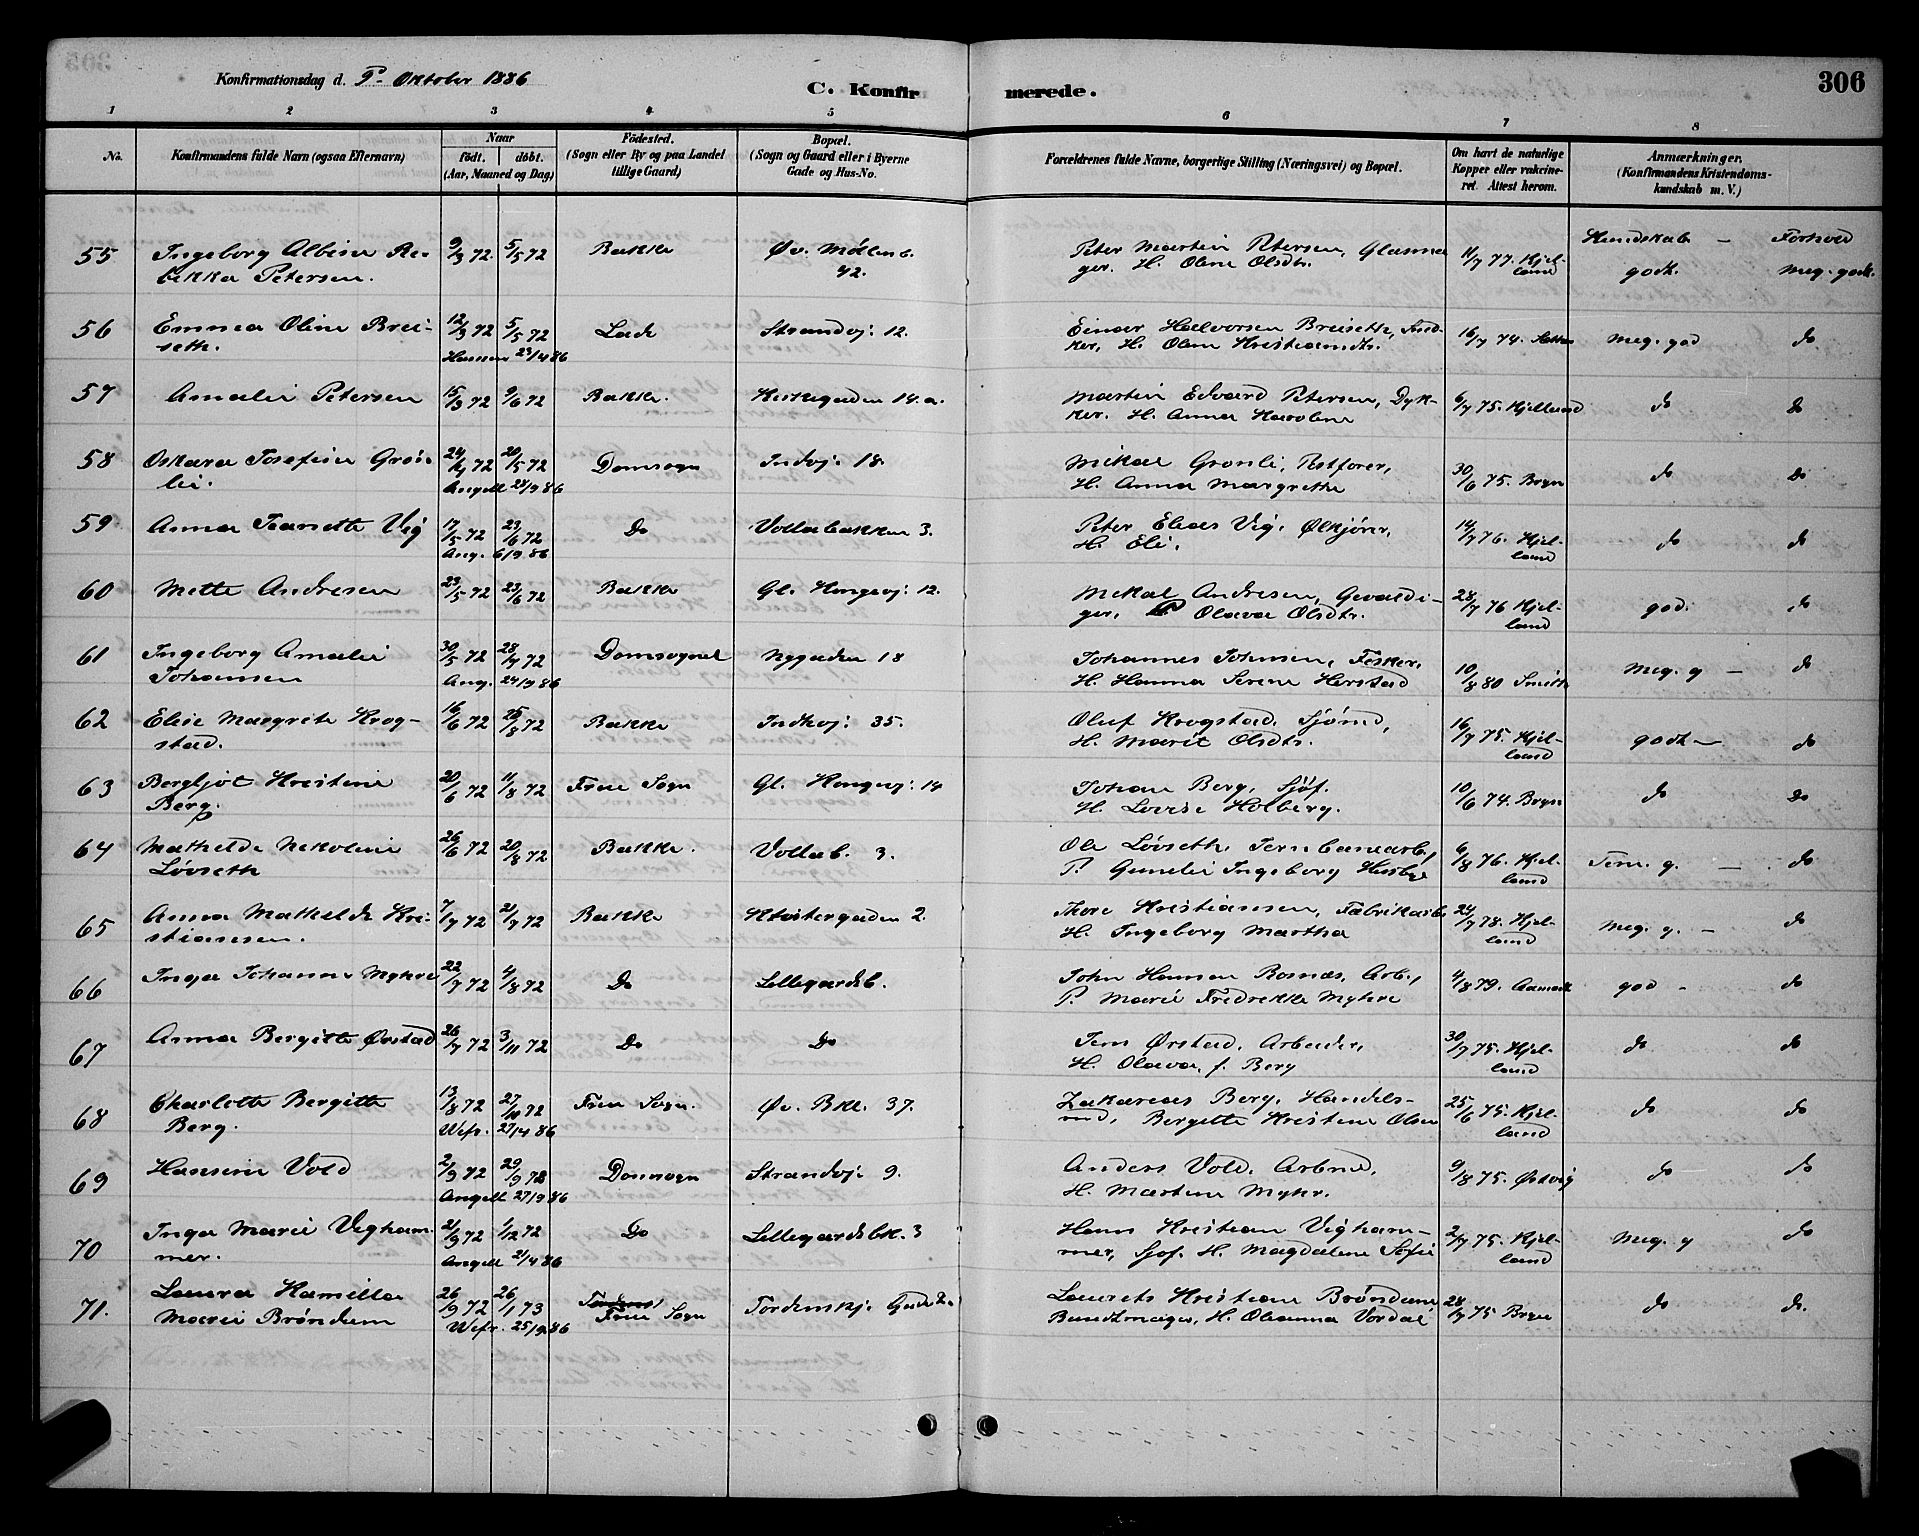 Konfirmationsdag d. 3. Oktober 1886
C. Konfirmerede.
306
1 2 3 4 5 6 7 8
No.
Konfirmandens fulde Navn (ogsaa Efternavn)
Naar
födt. döbt.
(Aar, Maaned og Dag)
Födested.
(Sogn eller By og paa Landet
tillige Gaard)
Bopæl.
(Sogn og Gaard eller i Byerne
Gade og Hus-No.
Forældrenes fulde Navne, borgerlige Stilling (Næringsvei) og Bopæl.
Om havt de naturlige
Kopper eller vakcine-
ret. Attest herom.
Anmærkninger.
(Konfirmandens Kristendoms-
kundskab m. V.)
55 Ingeborg Albine Re- 9/3 72. 5/5 72 Bakke Øv. Møllenb. Peter Martin Petersen, Glasma 11/7 77. Kjel- Kundskab – Forhold
bekka Petersen. 42. ger. H. Oline Olsdtr. land godt. meg. godt.
56 Emma Oline Brei- 12/3 72 5/5 72 Lade Strandvj: 12. Einar Halvorsen Breiseth, Sned- 16/7 74. meg. god do
seth. Hansen 23/4 86 ker, H. Oline Kristiansdtr.
57 Amalie Petersen 15/3 72 9/6 72 Bakke. Kirkegaden 14.a. Martin Edvard Petersen, Dyk- 6/7 75. Kjelland do do
ker. H. Anna Karoline
58 Oskara Josefine Grøn- 24/4 72 20/5 72 Domsogn Indvj: 18. Mikal Grønli, Postfører, 30/6 75. Bryn do do
lie. Angell 28/9 86 H. Anna Margrethe
59 Anna Jeanette Vig 17/5 72 23/6 72 Do Vollabakken 3. Peter Elias Vig, Ølkjører, 14/7 76. Kjel- do do
Ang. 6/9 86 H. Eli. land
60 Mette Andresen 23/5 72 23/6 72 Bakke Gl. Kongevj: 12. Mikal Andresen, Gevaldi- 28/7 76 Kjel- god. do
ger, Olava Olsdtr. land
61 Ingeborg Amalie 30/5 72 28/7 72 Domsognet Nygaden 18 Johannes Johnsen, Fisker, 10/8 80 Smith meg. g – do
Johansen Ang. 24/9 86 H. Hanna Serine Herstad
62 Elise Margrete Krog- 16/6 72 25/8 72 Bakke Indhvj: 35. Oluf Krogstad, Sjømd, 16/7 75. Kjel- godt – do
stad. H. Marit Olsdtr. land
63 Bergljot Kristine 20/6 72 11/8 72 Frue Sogn Gl. Kongevj: 14 Johan Berg, Sjöf. 10/6 74. Bryn do do
Berg. H. Lovise Holberg.
64 Mathilde Nikoline 26/6 72 20/8 72 Bakke. Vollab. 3. Ole Løvseth, Jernbanearb., 6/8 76. Kjel- Tem. g. – do
Løvseth P. Gunelie Ingeborg Husbye land
65 Anna Mathilde Kri- 7/7 72 21/7 72 Bakke Klostergaden 2. Thore Kristiansen, Fabrikarb. 24/7 78. Kjel- meg. g. – do
stiansen. H. Ingeborg Martha land
66 Inga Johanne Myhre 22/7 72 4/8 72 Do Lillegaardsb. John Hansen Rosnæs, Arb., 4/8 79. Aamodt god – do
P. Marie Fredrikke Myhre
67 Anna Bergitte Ørstad 26/7 72 3/11 72 Do Do Jens Ørstad, Arbeider, 30/7 75. Kjel- do do
H. Olava, f. Berg land
68 Charlotte Bergitte 13/8 72 27/10 72 Frue Sogn. Øv. Bkl. 37. Zakarias Berg, Handels- 25/6 75. Kjel- do do
Berg. Wefr. 27/4 86 md, Bergitte Kristine Olsen land
69 Hansine Vold 2/9 72 29/9 72 Domsogn Strandvj: 9. Anders Vold, Arbmd, 9/8 75. Østvig do do
Angell 27/9 86 H. Martine Myhr.
70 Inga Marie Vigham- 21/9 72 1/12 72 Do Lillegaardsbk. 3 Hans Kristian Vigham- 2/7 75. Kjel- meg. g do
mer. Angell 21/4 86 mer, Sjöf. H. Magdalene Sofie land
71. Laura Kamilla 26/9 72 26/1 73 Frue Sogn Tordenskj. Gade Laurits Kristian Brøndum 28/7 75 Bryn do do.
Marie Brøndum Wefr. 25/9 86 Bundtmager, H. Oleanna Vordal